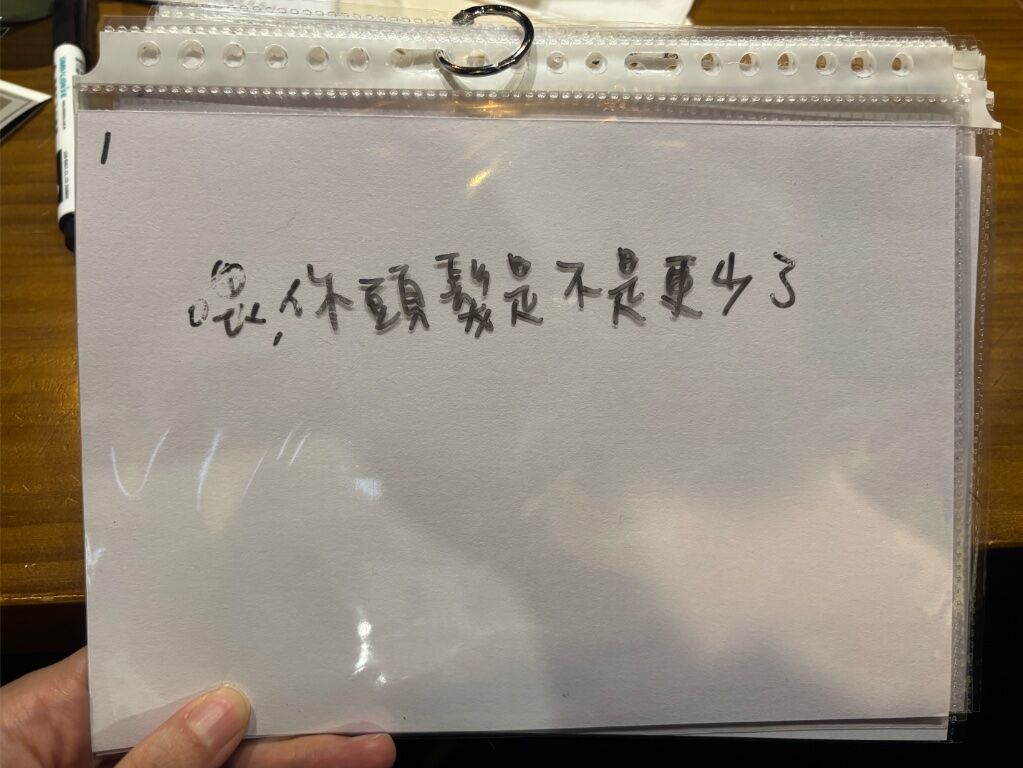 1
喂,你頭髮是不是更少了